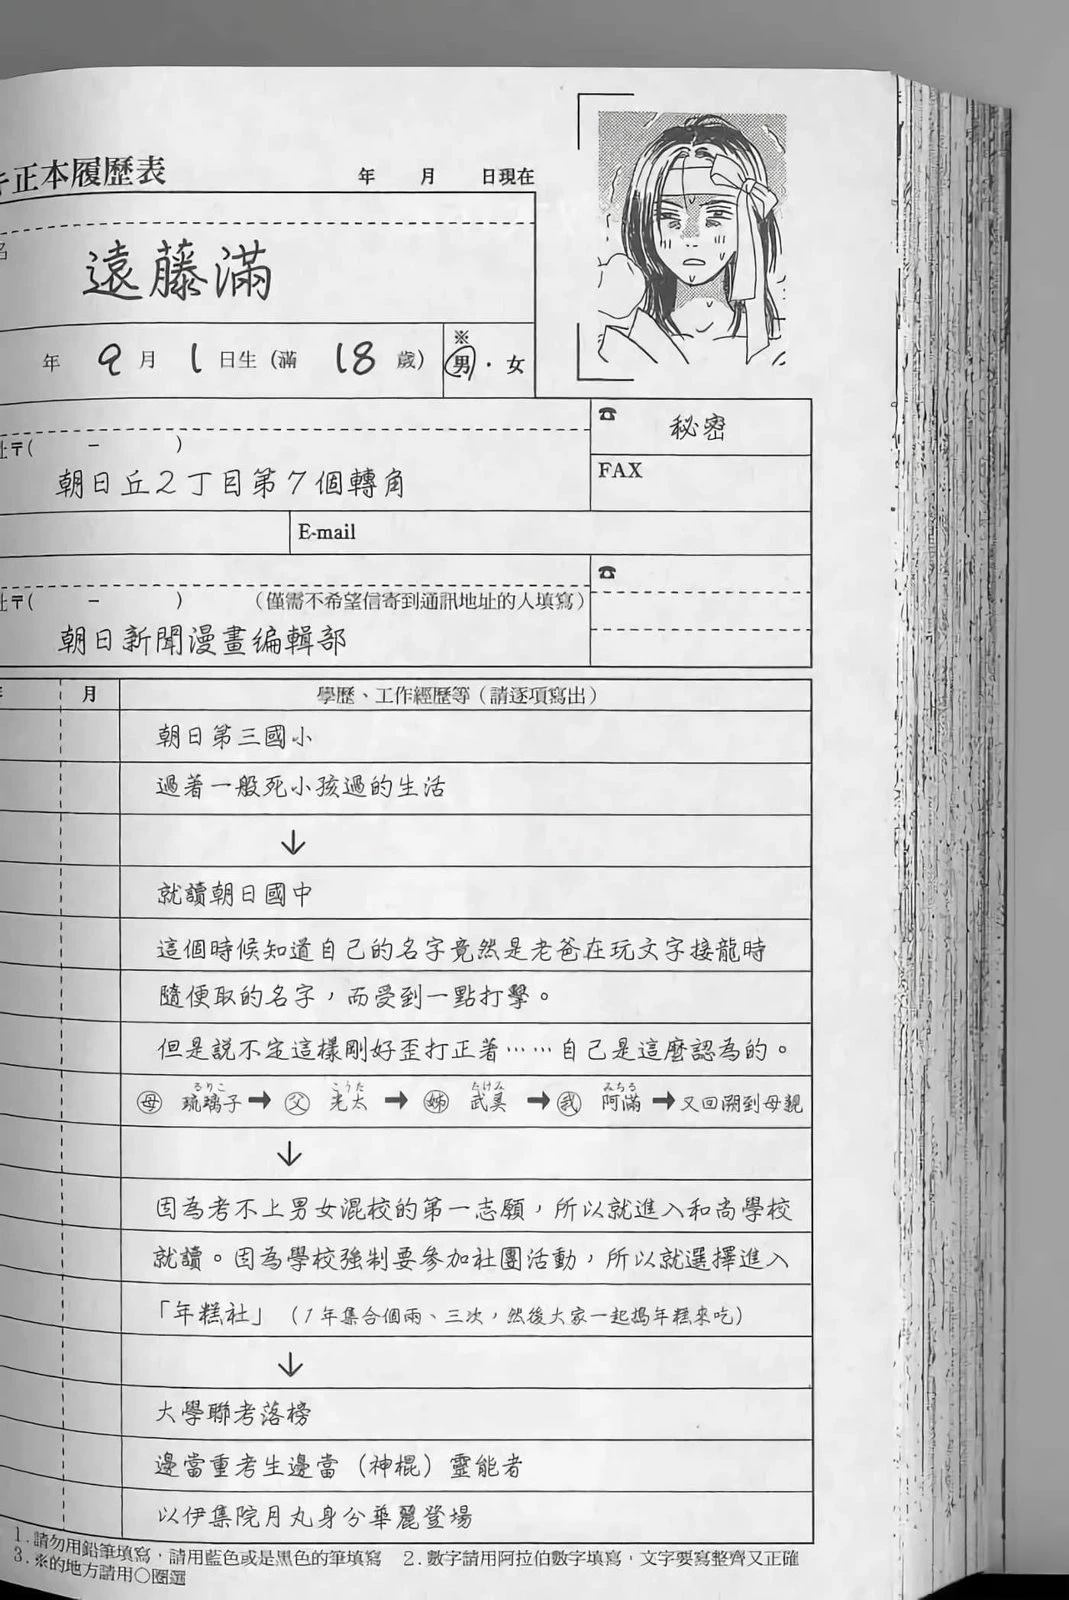 正本履歷表 年 月 日現在
名
遠藤滿
年 9月 1日生(滿 18 歲) ※ 男・女
☎ 秘密
址〒( - )
FAX
朝日丘2丁目第7個轉角
E-mail
☎
址〒( - ) (僅需不希望信寄到通訊地址的人填寫)
朝日新聞漫畫編輯部
年 月 學歷、工作經歷等(請逐項寫出)
朝日第三國小
過著一般死小孩過的生活
↓
就讀朝日國中
這個時候知道自己的名字竟然是老爸在玩文字接龍時
隨便取的名字,而受到一點打擊。
但是說不定這樣剛好歪打正著……自己是這麼認為的。
るりこ こうた たけみ みちる
母 琉璃子→父 光太→姊 武美→我 阿滿→又回溯到母親
↓
因為考不上男女混校的第一志願,所以就進入和尚學校
就讀。因為學校強制要參加社團活動,所以就選擇進入
「年糕社」(1年集合個兩、三次,然後大家一起搗年糕來吃)
↓
大學聯考落榜
邊當重考生邊當(神棍)靈能者
以伊集院月丸身分華麗登場
1.請勿用鉛筆填寫,請用藍色或是黑色的筆填寫 2.數字請用阿拉伯數字填寫,文字要寫整齊又正確
3.※的地方請用○圈選